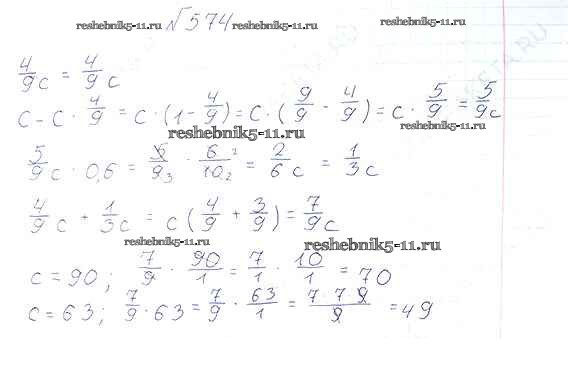 №574
reshebnik5-11.ru reshebnik5-11.ru reshebnik5-11.ru
4/9 c = 4/9 c
c - c · 4/9 = c · (1 - 4/9) = c · (9/9 - 4/9) = c · 5/9 = 5/9 c
reshebnik5-11.ru reshebnik5-11.ru
5/9 c · 0,6 = 5/9 3 · 6 2/10 2 = 2/6 c = 1/3 c
4/9 c + 1/3 c = c (4/9 + 3/9) = 7/9 c
reshebnik5-11.ru reshebnik5-11.ru
c = 90; 7/9 · 90/1 = 7/1 · 10/1 = 70
c = 63; 7/9 · 63 = 7/9 · 63/1 = 7·7·9/9 = 49